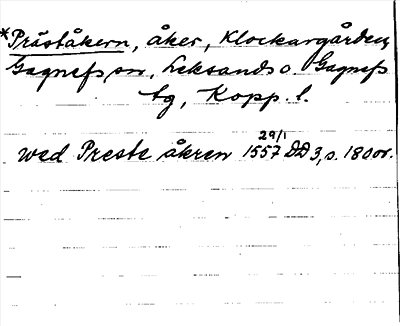 *Präståkern, åker, Klockargården,
Gagnefs sn, Leksands o. Gagnefs
tg, Kopp. l.
29/1
wed Preste åkren 1557 DD 3, s. 180 or.